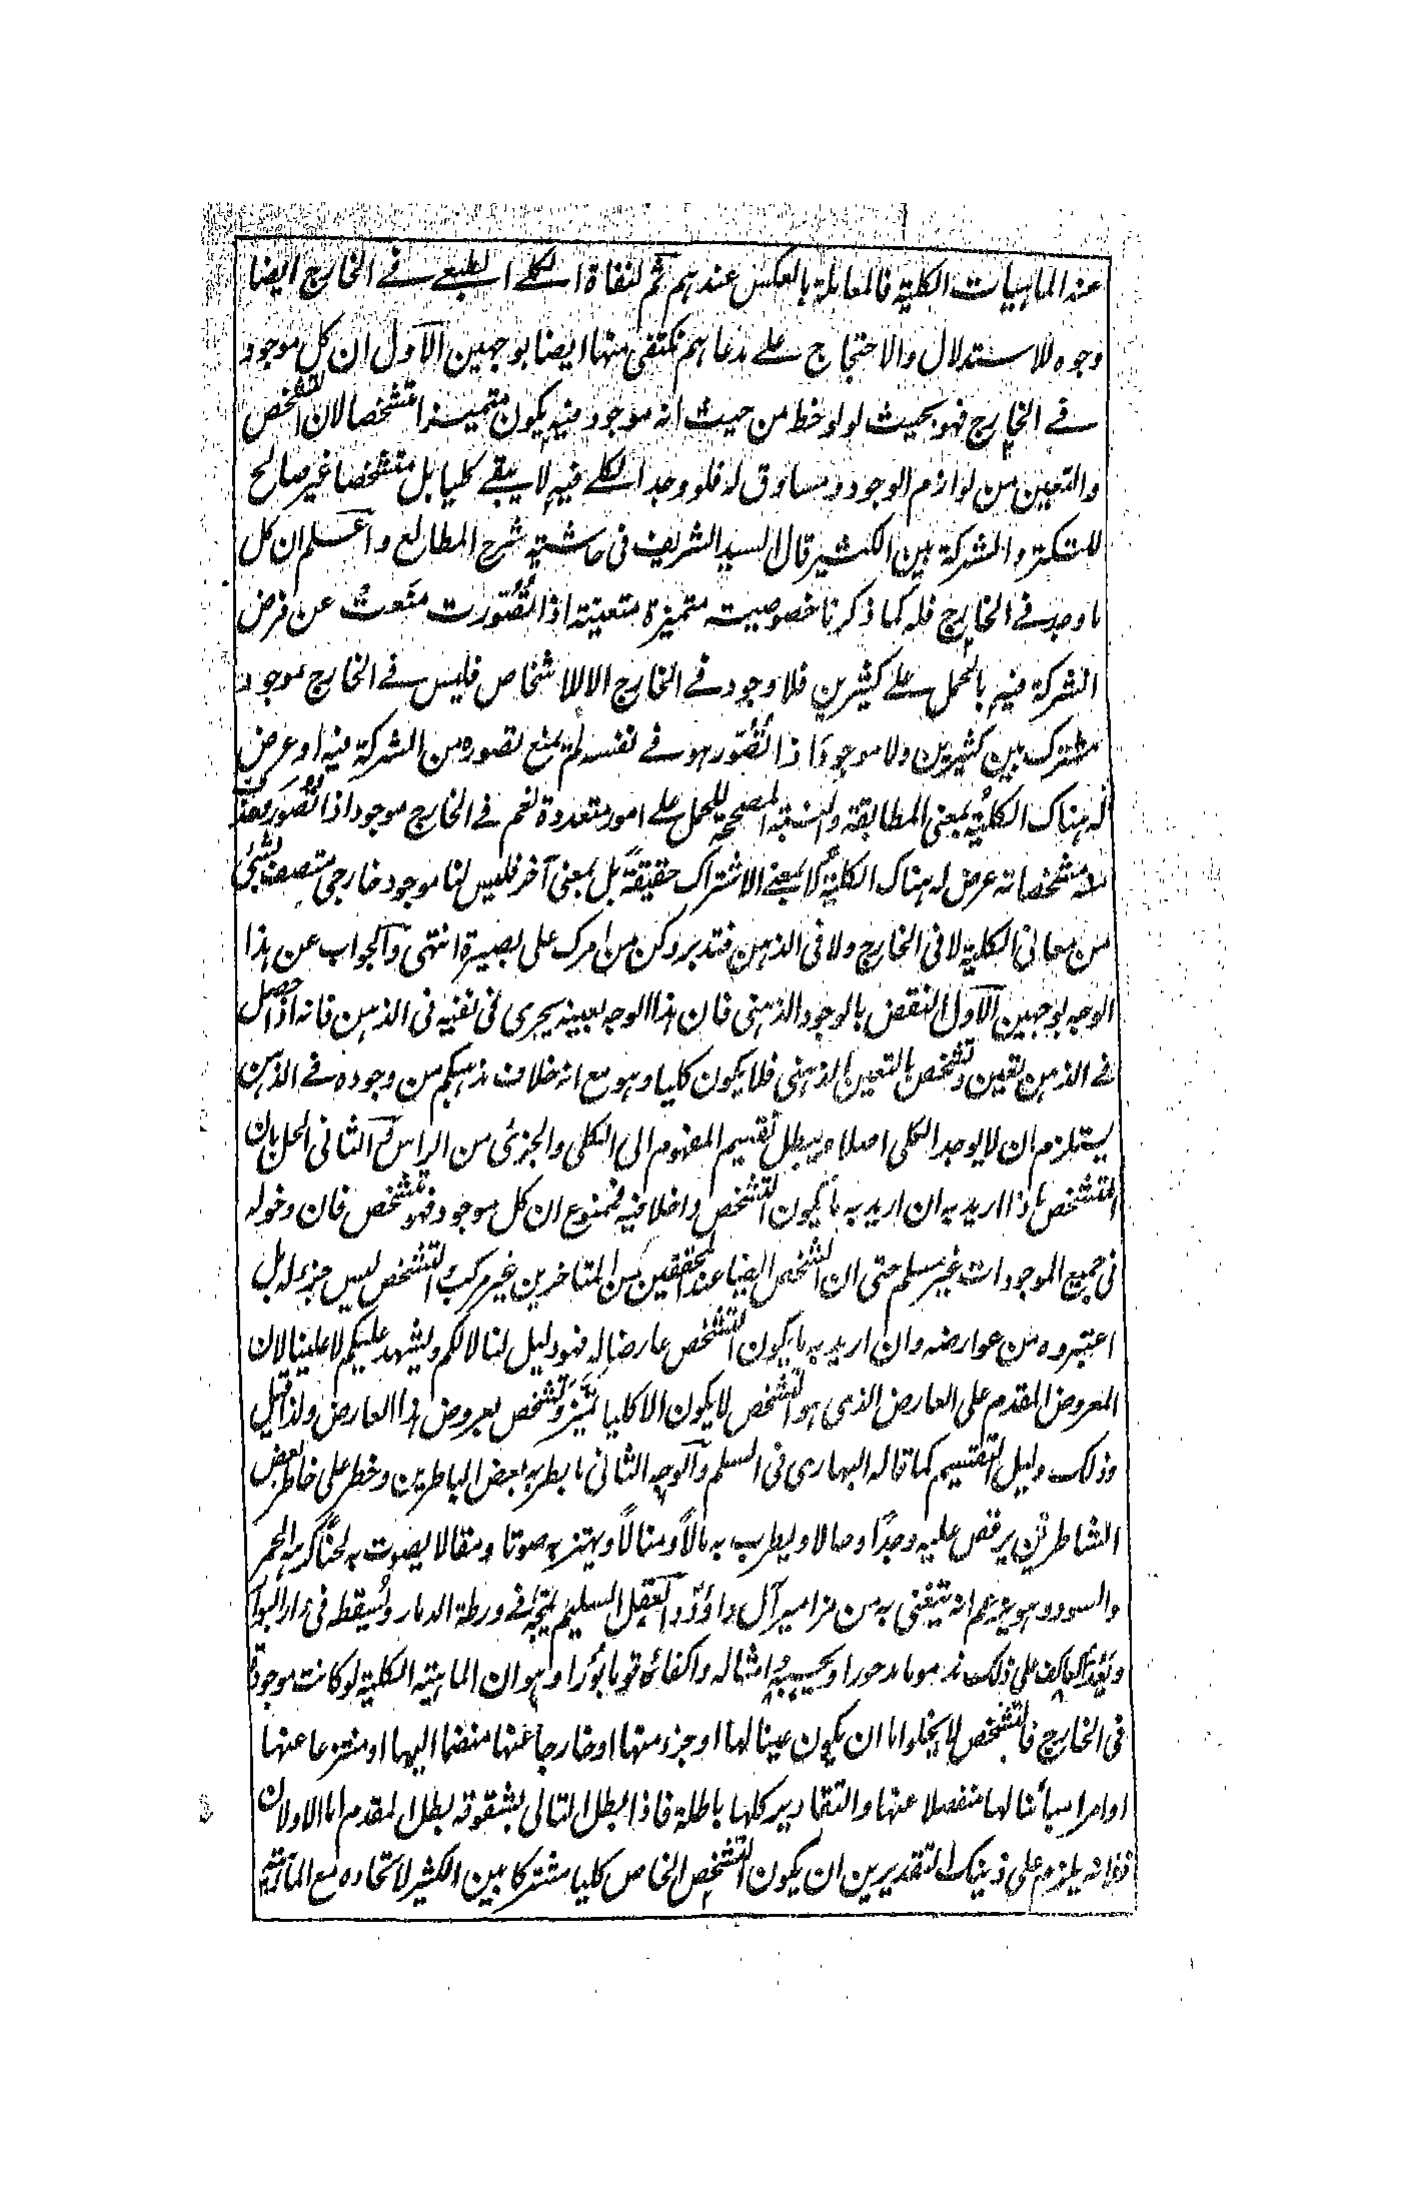 عند الماهيات الكلية فالمعاملة بالعكس عندهم ثم لنفاة الكلي الطبعي في الخارج ايضا
وجوه للاستدلال والاحتجاج على مدعاهم نكتفي منها ايضا بوجهين الاول ان كل موجود
في الخارج فهو بحيث لو لوحظ من حيث انه موجود فيه يكون متميزا متشخصا لان التشخص
والتعين من لوازم الوجود ومساوق له فلو وجد الكلي فيه لا يبقى كليا بل متشخصا غير صالح
للتكثر والشركة بين الكثير قال السيد الشريف في حاشية شرح المطالع واعلم ان كل
ما وجد في الخارج فله كما ذكرنا خصوصية متميزة متعينة اذا تصورت منعت عن فرض
الشركة فيه بالحمل على كثيرين فلا وجود في الخارج الا للاشخاص فليس في الخارج موجود
مشترك بين كثيرين ولا موجود اذا تصور هو في نفسه لم يمنع تصوره من الشركة فيه او عرض
له هناك الكلية بمعنى المطابقة والنسبة المصححة للحمل على امور متعددة نعم في الخارج موجود اذا تصور
مشخصاته عرض له هناك الكلية لا بمعنى الاشتراك حقيقة بل بمعنى آخر فليس لنا موجود خارجي متصف بشئ
من معاني الكلية لا في الخارج ولا في الذهن فتدبر وكن من امرك على بصيرة انتهى والجواب عن هذا
الوجه بوجهين الاول النقض بالوجود الذهني فان هذا الوجه بعينه يجرى في نفيه في الذهن فانه اذا حصل
في الذهن تعين وتشخص بالتعين الذهني فلا يكون كليا وهو مع انه خلاف مذهبكم من وجوده في الذهن
يستلزم ان لا يوجد الكلى اصلا ويبطل تقسيم المفهوم الى الكلى والجزئ من الراس والثاني الحل بان
المتشخص ماذا اريد به ان اريد به ما يكون التشخص داخلا فيه فممنوع ان كل موجود فهو متشخص فان دخوله
في جميع الموجودات غير مسلم حتى ان الشخص ايضا عند المحققين من المتاخرين غير مركب والتشخص ليس جزء له بل
اعتبروه من عوارضه وان اريد به ما يكون التشخص عارضا له فهو دليل لنا لا لكم ويشهد عليكم لا علينا لان
المعروض المقدم على العارض الذى هو التشخص لا يكون الا كليا تميز وتشخص بعروض هذا العارض ولذا قيل
وذلك دليل التقسيم كما قاله البهارى في السلم والوجه الثاني ما يطربه بعض الباطرين وخطر على خاطر بعض
الشاطرين يرقص عليه وجدا وحالا ويطرب به مآلا ومنالا ويهتز به صوتا ومقالا يصوت به لحنا الحمر
والسود وهو يزعم انه يتغنى به من مزامير آل داؤد والعقل السليم في ورطة الدمار ويسقطه في دار البوار
على ذلك مذموما مدحورا امثاله واكفائه قوما بورا وهو ان الماهية الكلية لو كانت موجودة
في الخارج فالتشخص لا يخلو اما ان يكون عينا لها او جزء منها او خارجا عنها منضما اليها او منتزعا عنها
او امرا مبائنا لها منفصلا عنها والتقادير كلها باطلة فاذا بطل التالى بشقوقه بطل المقدم اما الاولان
فلانه يلزم على ذينك التقديرين ان يكون التشخص الخاص كليا مشتركا بين الكثير لاتحاده مع الماهية